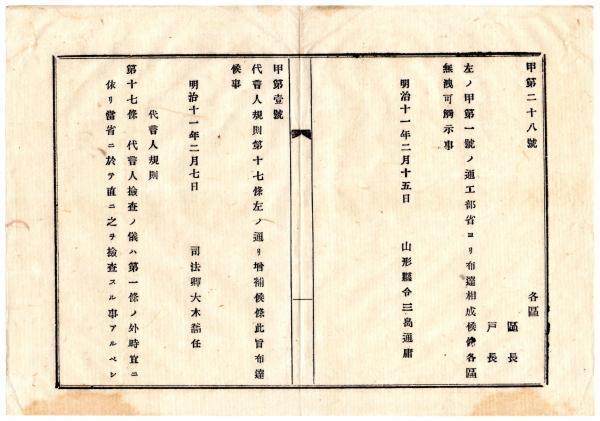 甲第二十八號
各區
區長
戸長
左ノ甲第一號ノ通工部省ヨリ布達相成候條各區
無洩可觸示事
明治十一年二月十五日 山形縣令三島通庸
甲第壹號
代書人規則第十七條左ノ通リ增補候條此旨布達
候事
明治十一年二月七日 司法卿大木喬任
代書人規則
第十七條 代書人撿查ノ儀ハ第一條ノ外時宜ニ
依リ當省ニ於テ直ニ之ヲ撿查スル事アルベシ